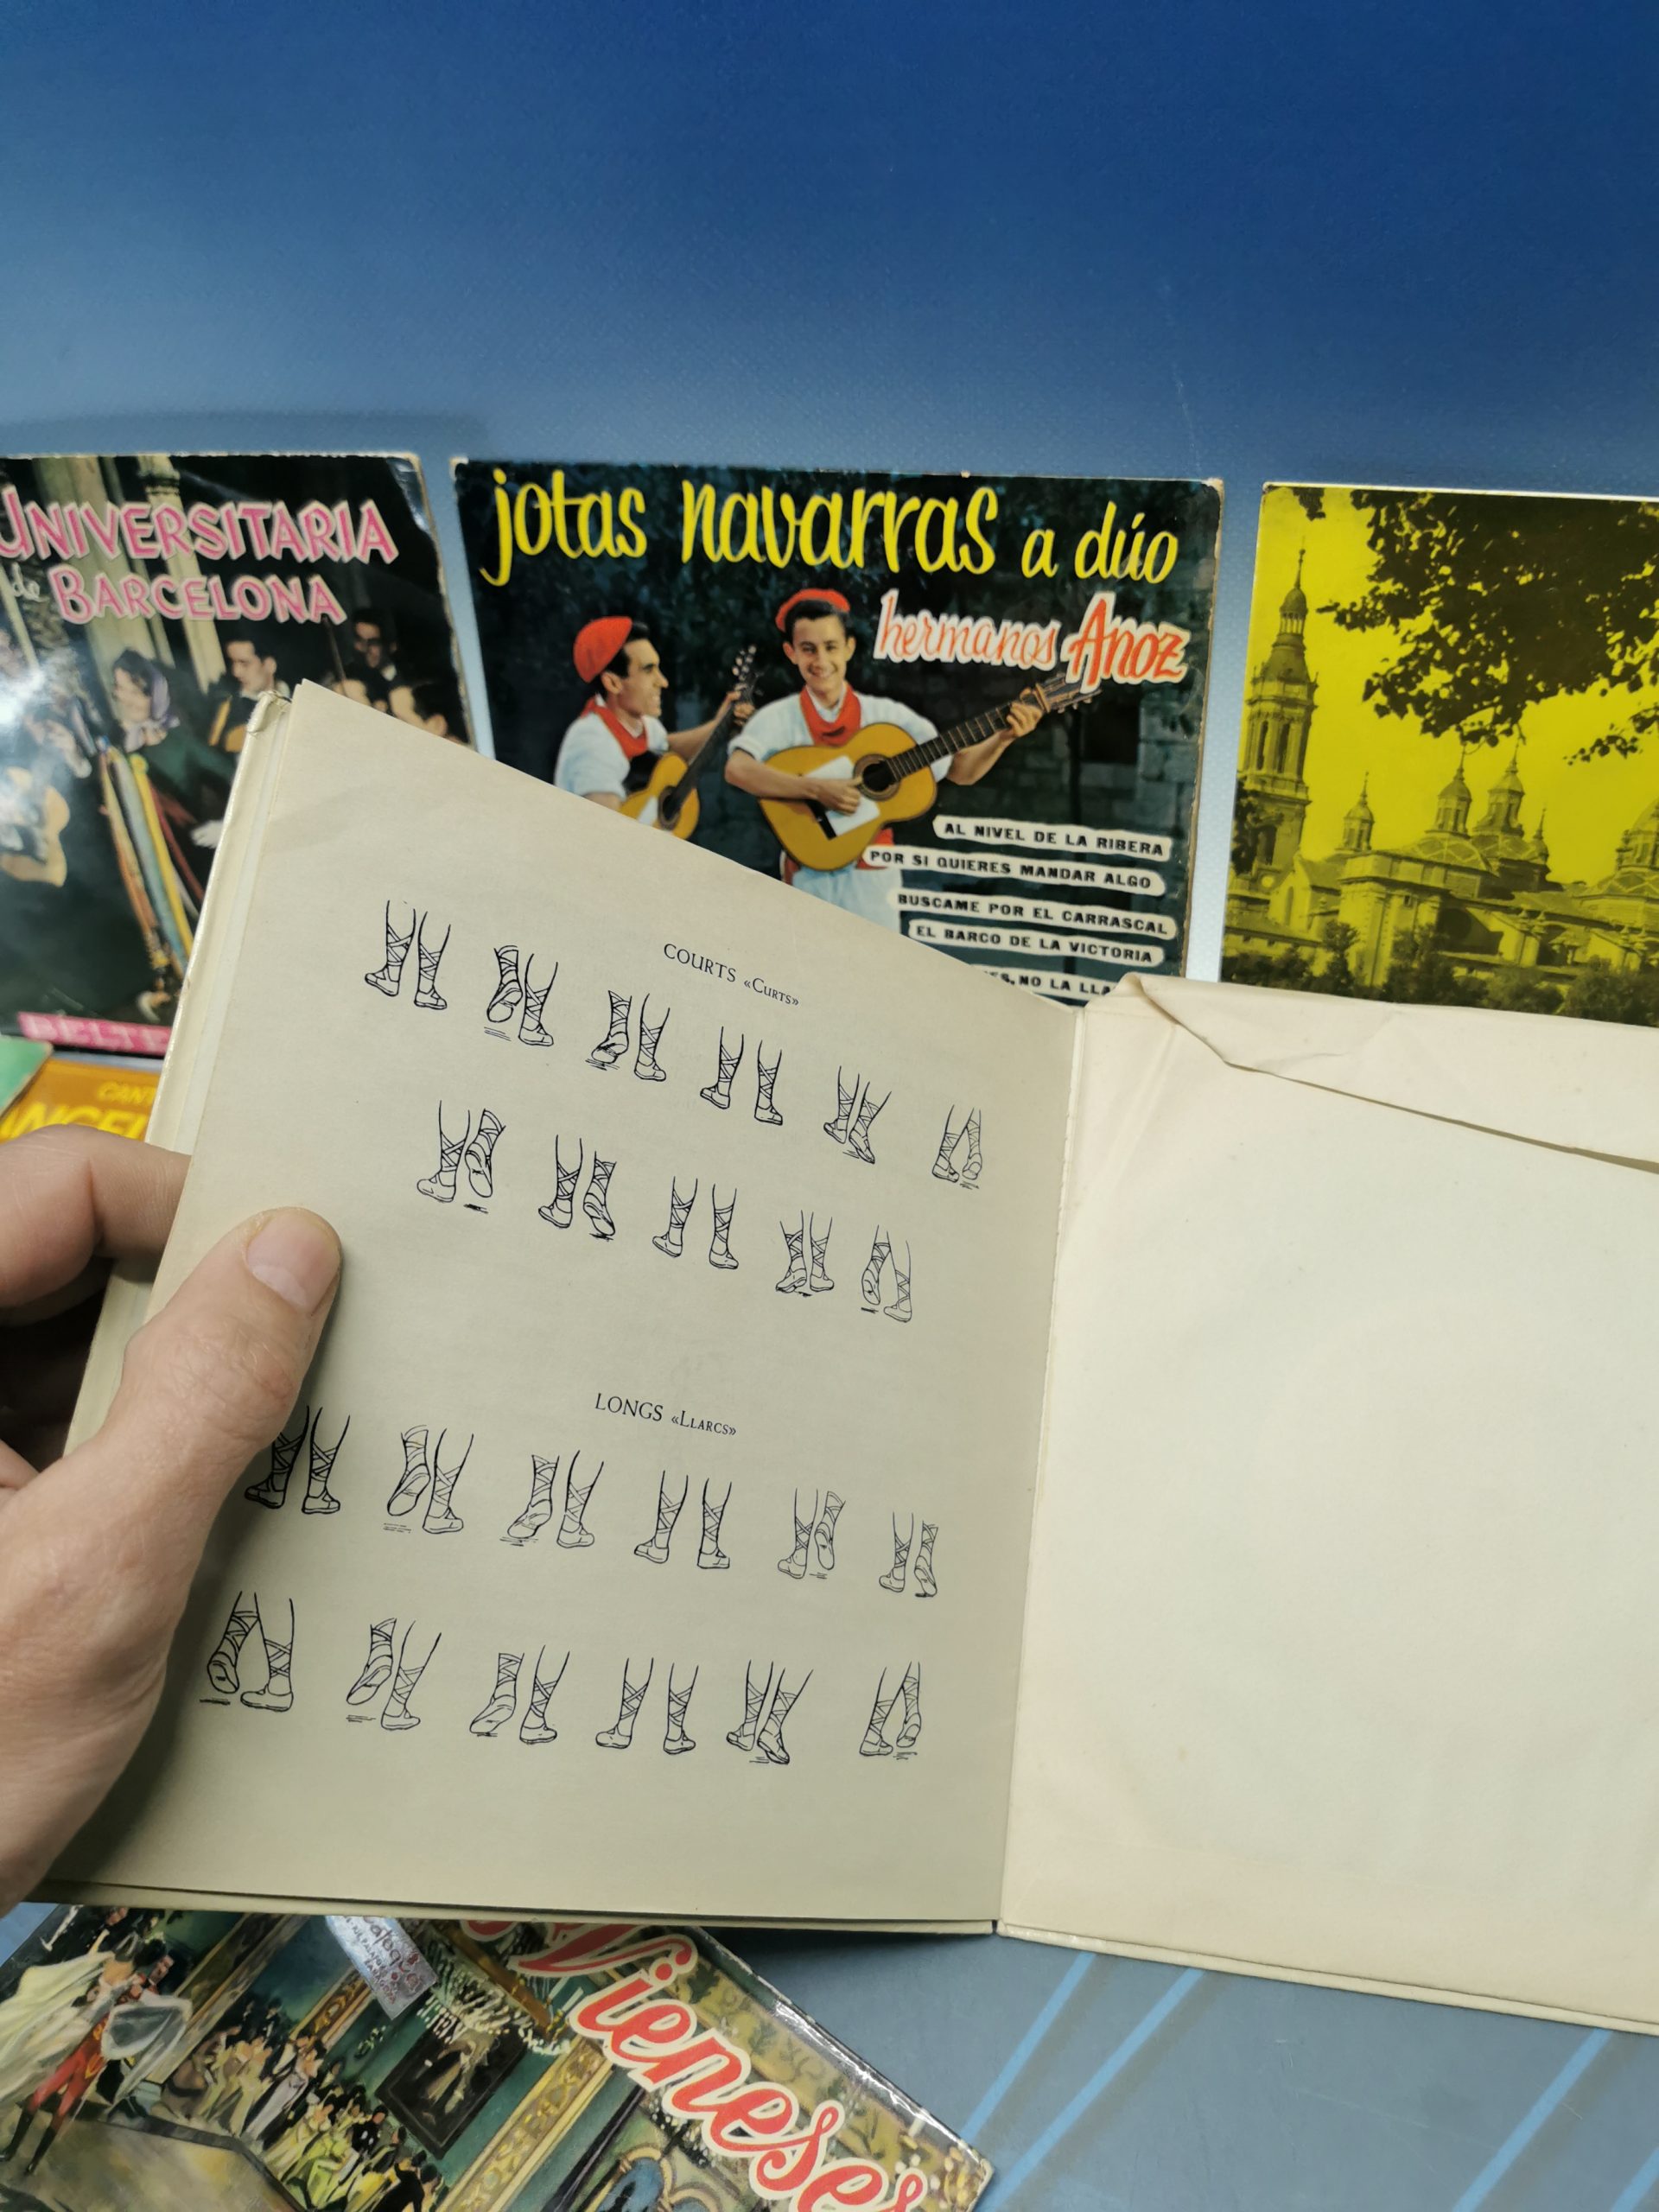 UNIVERSITARIA
de BARCELONA
jotas navarras a dúo
hermanos Anoz
AL NIVEL DE LA RIBERA
POR SI QUIERES MANDAR ALGO
BUSCAME POR EL CARRASCAL
EL BARCO DE LA VICTORIA
NO LA
COURTS «CURTS»
LONGS «LLARCS»
Vieneses